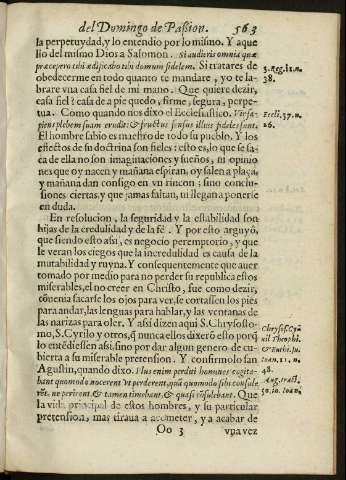 del Domingo de Passion. 563
la perpetuydad, y lo entendio por lo mismo. Y aque
llo del mismo Dios a Salomon. Si audieris omnia quæ
præcepero tibi ædificabo tibi domum fidelem. Si tratares de
obedecerme en todo quanto te mandare, yo te la-
brare vna casa fiel de mi mano. Que quiere dezir,
casa fiel? casa de a pie quedo, firme, segura, perpe-
tua. Como quando nos dixo el Ecclesiastico. Vir sa-
piens plebem suam erudit: & fructus sensus illius fideles sunt.
El hombre sabio es maestro de todo su pueblo. Y los
effectos de su doctrina son fieles: esto es, lo que se sa-
ca de ella no son imaginaciones y sueños, ni opinio
nes que oy nacen y mañana espiran, oy salen a plaça,
y mañana dan consigo en vn rincon; sino conclu-
siones ciertas, y que jamas faltan, ni llegan a ponerse
en duda.
En resolucion, la seguridad y la estabilidad son
hijas de la credulidad y de la fê. Y por esto arguyó,
que siendo esto assi, es negocio peremptorio, y que
le veran los ciegos que la incredulidad es causa de la
mutabilidad y ruyna. Y consequentemente que auer
tomado por medio para no perder su republica estos
miserables, el no creer en Christo, fue como dezir,
cõuenia sacarse los ojos para ver, se cortassen los pies
para andar, las lenguas para hablar, y las ventanas de
las narizes para oler. Y assi dizen aqui S. Chrysosto-
mo, S. Cyrilo y otros, q̃ nunca ellos dixerõ esto porq̃
lo entẽdiessen assi, sino por dar algun genero de cu-
bierta a su miserable pretension. Y confirmolo san
Agustin, quando dixo. Plus enim perdui homines cogita-
bant quomodo nocerent vt perderent, quã quomodo sibi consule
rẽt. ne perirent, & tamen timebant, & quasi cõsulebant. Que
la vida principal de estos hombres, y su particular
pretension, mas tiraua a acometer, y a acabar de
Oo 3 vna vez
3. Reg. 11. n.
38.
Eccli. 37. n.
26.
Chryso. Cy
ril Theophi.
& Euthi. su.
Ioan. 11. n.
48.
Aug. tract.
50. in Ioan.